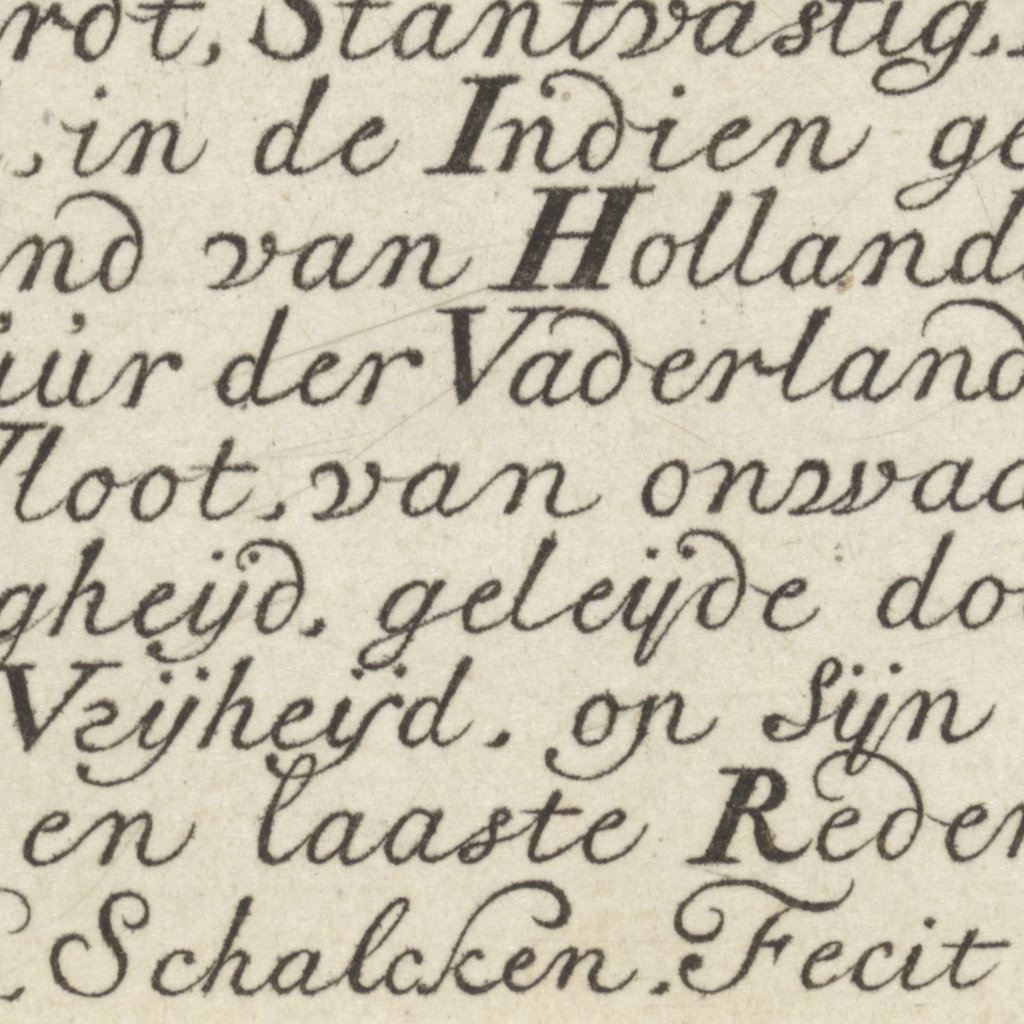 rdt, Stantvastig,
, in de Indien ge
nd van Holland
üür der Vaderland
Vloot, van onwaa
gheÿd, geleÿde do
Vrÿheÿd, on Sÿn
en laaste Reden
. Schalcken. Fecit